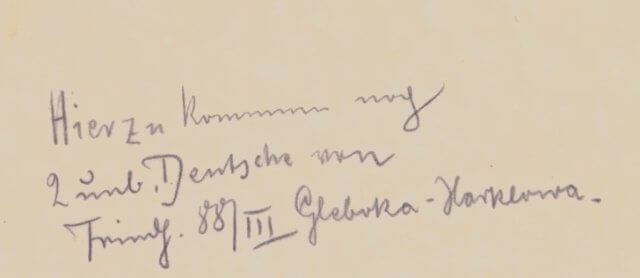 Hierzu kommen noch
2 unb. Deutsche von
Friedh. 88/III Gleboka-Harklowa.